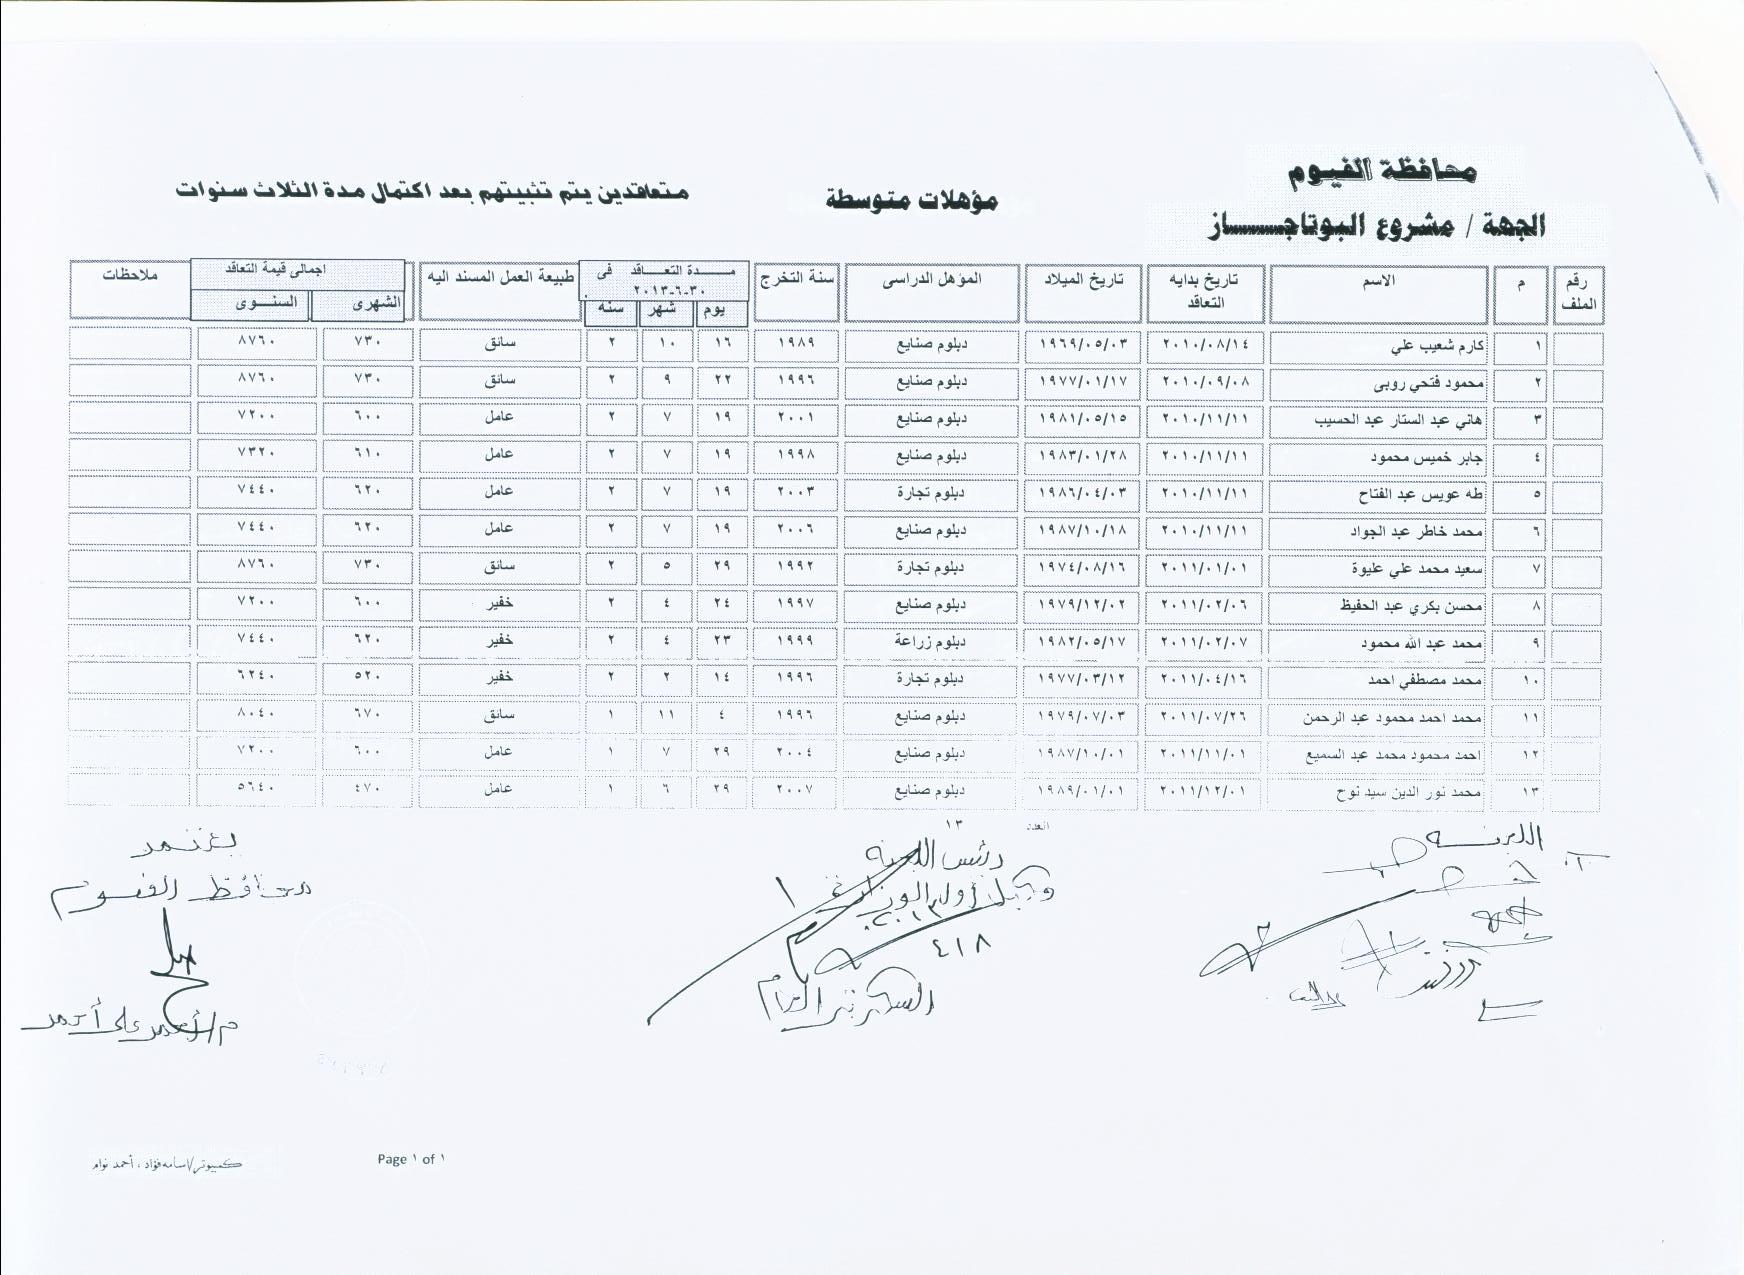 محافظة الفيوم
الجهة / مشروع البوتاجــــــاز
مؤهلات متوسطة
متعاقدين يتم تثبيتهم بعد اكتمال مدة الثلاث سنوات
رقم الملف م الاسم تاريخ بدايه التعاقد تاريخ الميلاد المؤهل الدراسى سنة التخرج مـــدة التعـــاقد فى ٣٠-٦-٢٠١٣ يوم شهر سنه طبيعة العمل المسند اليه اجمالى قيمة التعاقد الشهرى السنــوى ملاحظات
١ كارم شعيب علي ٢٠١٠/٠٨/١٤ ١٩٦٩/٠٥/٠٣ دبلوم صنايع ١٩٨٩ ١٦ ١٠ ٢ سائق ٧٣٠ ٨٧٦٠
٢ محمود فتحي روبى ٢٠١٠/٠٩/٠٨ ١٩٧٧/٠١/١٧ دبلوم صنايع ١٩٩٦ ٢٢ ٩ ٢ سائق ٧٣٠ ٨٧٦٠
٣ هاني عبد الستار عبد الحسيب ٢٠١٠/١١/١١ ١٩٨١/٠٥/١٥ دبلوم صنايع ٢٠٠١ ١٩ ٧ ٢ عامل ٦٠٠ ٧٢٠٠
٤ جابر خميس محمود ٢٠١٠/١١/١١ ١٩٨٣/٠١/٢٨ دبلوم صنايع ١٩٩٨ ١٩ ٧ ٢ عامل ٦١٠ ٧٣٢٠
٥ طه عويس عبد الفتاح ٢٠١٠/١١/١١ ١٩٨٦/٠٤/٠٣ دبلوم تجارة ٢٠٠٣ ١٩ ٧ ٢ عامل ٦٢٠ ٧٤٤٠
٦ محمد خاطر عبد الجواد ٢٠١٠/١١/١١ ١٩٨٧/١٠/١٨ دبلوم صنايع ٢٠٠٦ ١٩ ٧ ٢ عامل ٦٢٠ ٧٤٤٠
٧ سعيد محمد علي عليوة ٢٠١١/٠١/٠١ ١٩٧٤/٠٨/١٦ دبلوم تجارة ١٩٩٢ ٢٩ ٥ ٢ سائق ٧٣٠ ٨٧٦٠
٨ محسن بكري عبد الحفيظ ٢٠١١/٠٢/٠٦ ١٩٧٩/١٢/٠٢ دبلوم صنايع ١٩٩٧ ٢٤ ٤ ٢ خفير ٦٠٠ ٧٢٠٠
٩ محمد عبد الله محمود ٢٠١١/٠٢/٠٧ ١٩٨٢/٠٥/١٧ دبلوم زراعة ١٩٩٩ ٢٣ ٤ ٢ خفير ٦٢٠ ٧٤٤٠
١٠ محمد مصطفي احمد ٢٠١١/٠٤/١٦ ١٩٧٧/٠٣/١٢ دبلوم تجارة ١٩٩٦ ١٤ ٢ ٢ خفير ٥٢٠ ٦٢٤٠
١١ محمد احمد محمود عبد الرحمن ٢٠١١/٠٧/٢٦ ١٩٧٩/٠٧/٠٣ دبلوم صنايع ١٩٩٦ ٤ ١١ ١ سائق ٦٧٠ ٨٠٤٠
١٢ احمد محمود محمد عبد السميع ٢٠١١/١١/٠١ ١٩٨٧/١٠/٠١ دبلوم صنايع ٢٠٠٤ ٢٩ ٧ ١ عامل ٦٠٠ ٧٢٠٠
١٣ محمد نور الدين سيد نوح ٢٠١١/١٢/٠١ ١٩٨٩/٠١/٠١ دبلوم صنايع ٢٠٠٧ ٢٩ ٦ ١ عامل ٤٧٠ ٥٦٤٠
العدد ١٣
اللجنـــة
رئيس اللجنة
وكيل أول الوزارة
٢٠١٣
٤١٨
السكرتير العام
يعتمد
محافظ الفيوم
م/أحمد على أحمد
كمبيوتر/اسامه فؤاد ، أحمد نوام
Page ١ of ١